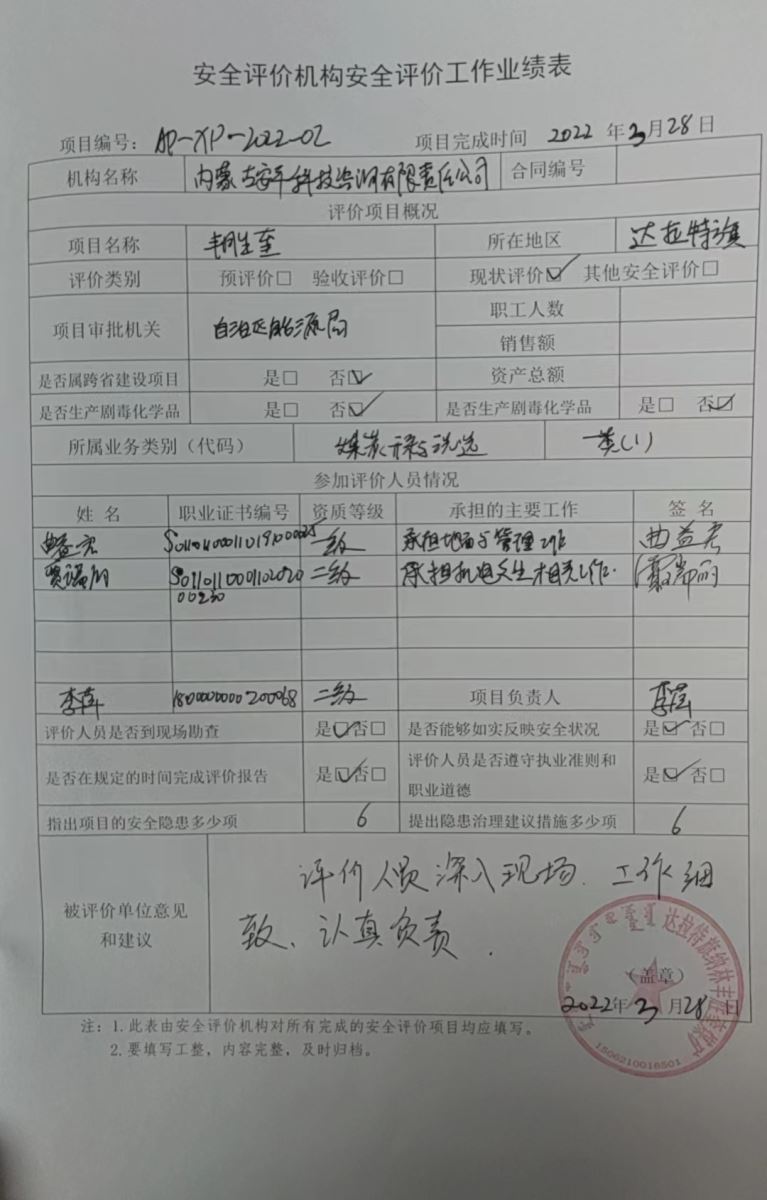 安全评价机构安全评价工作业绩表
项目编号：AP-XP-2022-02 项目完成时间 2022 年 3 月 28 日
机构名称 内蒙古安平科技咨询有限责任公司 合同编号
评价项目概况
项目名称 所在地区 达拉特旗
评价类别 预评价□ 验收评价□ 现状评价☑ 其他安全评价□
项目审批机关 职工人数
销售额
是否属跨省建设项目 是□ 否☑ 资产总额
是否生产剧毒化学品 是□ 否☑ 是否生产剧毒化学品 是□ 否☑
所属业务类别（代码） 煤炭开采与洗选 一类(1)
参加评价人员情况
姓 名 职业证书编号 资质等级 承担的主要工作 签 名
曲益宏 承担地面与管理工作 曲益宏
S011011000110202000230 二级 承担机电 相关工作.
李萍 1800000000200068 二级 项目负责人 李萍
评价人员是否到现场勘查 是☑否□ 是否能够如实反映安全状况 是☑否□
是否在规定的时间完成评价报告 是☑否□ 评价人员是否遵守执业准则和
职业道德 是☑否□
指出项目的安全隐患多少项 6 提出隐患治理建议措施多少项 6
被评价单位意见
和建议
评价人员深入现场、工作细
致、认真负责.
（盖章）
2022年 3 月28日
1506210016501
注：1.此表由安全评价机构对所有完成的安全评价项目均应填写。
2.要填写工整，内容完整，及时归档。